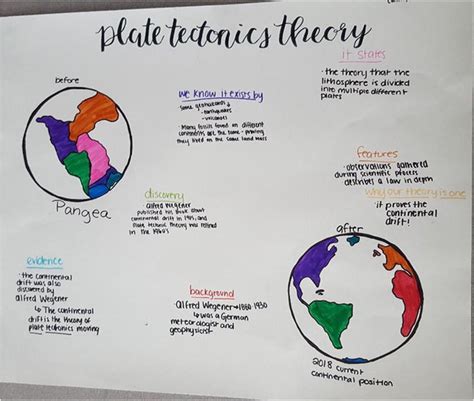 plate tectonics theory
it states
· the theory that the
lithosphere is divided
into multiple different
plates
before
we know it exists by
· some
→ earthquakes
→ volcanoes
· Many fossils found on different
continents are the same - proving
they lived on the same land mass
features
· observations gathered
during scientific process
describes a law in depth
why our theory is one
· it proves the
continental
drift!
discovery
alfred wegener
published his book about
continental drift in 1915, and
plate tectonic theory was refined
in the 1960s
Pangea
after
evidence
· the continental
drift was also
discovered by
alfred Wegener
↳ The continental
drift is the theory of
plate tectonics moving
background
· Alfred Wegener → 1880-1930
↳ was a German
meteorologist and
geophysicist
2018 current
continental position